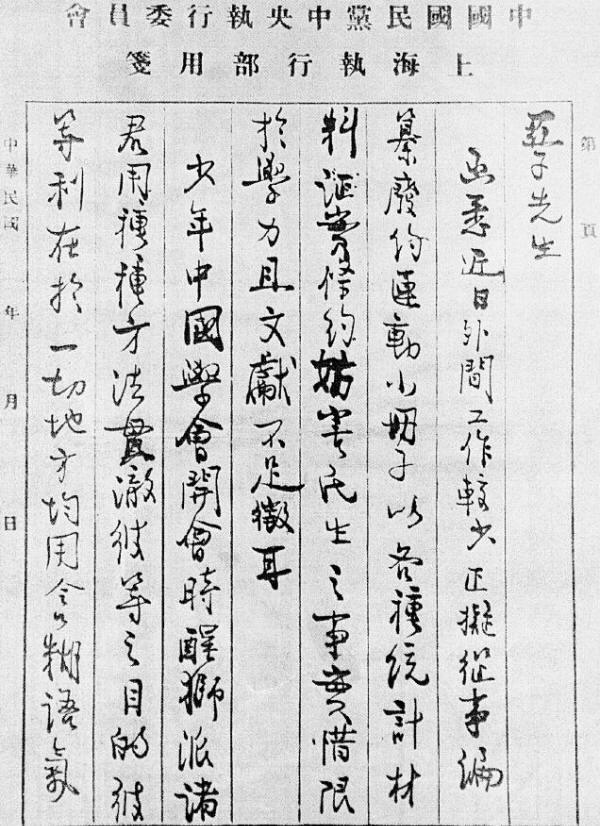 中國國民黨中央執行委員會
上海執行部用箋
第 頁
亞子先生
函悉近日外間工作較少正擬從事編
纂廢約運動小冊子以各種統計材
料證實條約妨害民生之事實惜限
於學力且文獻不足徵耳
少年中國學會開會時醒獅派諸
君用種種方法貫澈彼等之目的彼
等利在於一切地方均用含糊語氣
中華民國 年 月 日